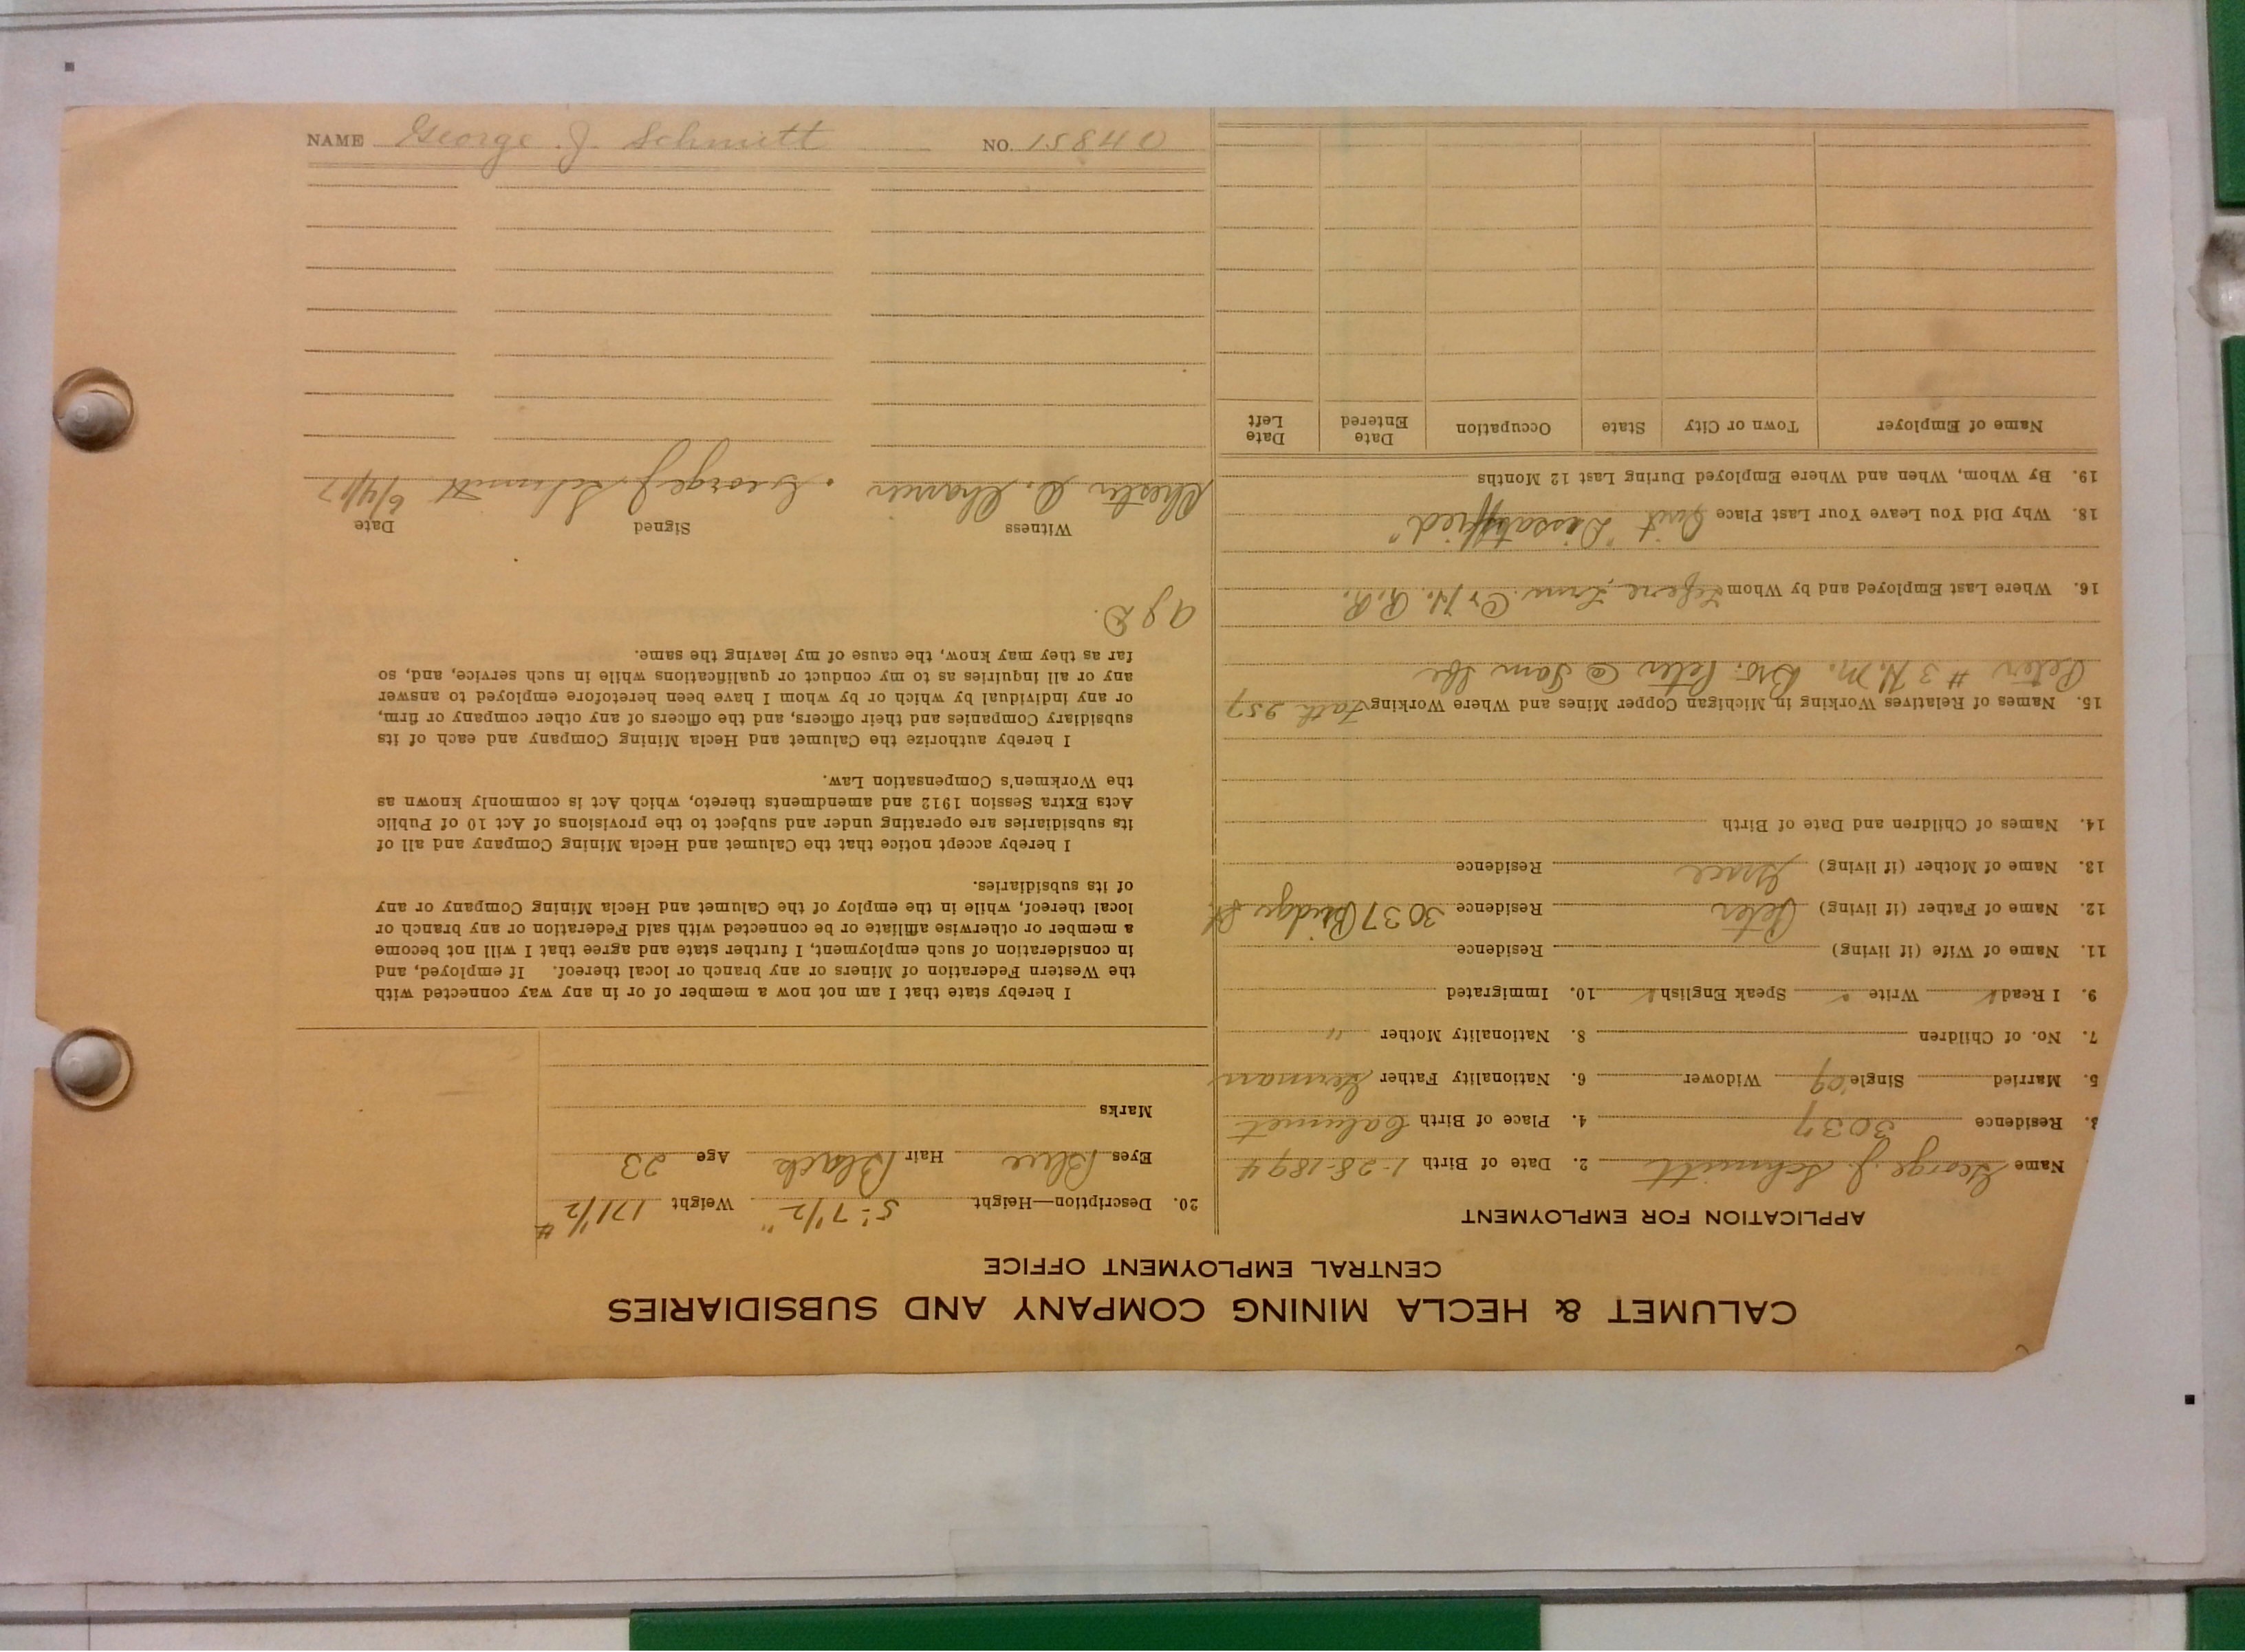 CALUMET & HECLA MINING COMPANY AND SUBSIDIARIES
CENTRAL EMPLOYMENT OFFICE
APPLICATION FOR EMPLOYMENT
Name George J. Schmitt 2. Date of Birth 1-28-1894
3. Residence 3037 4. Place of Birth Calumet
5. Married Single Widower 6. Nationality Father German
7. No. of Children 8. Nationality Mother "
9. I Read Write Speak English 10. Immigrated
11. Name of Wife (if living) Residence
12. Name of Father (if living) Peter Residence 3037 Bridge St.
13. Name of Mother (if living) Residence
14. Names of Children and Date of Birth
15. Names of Relatives Working in Michigan Copper Mines and Where Working Fath 257
Peter #3 H.M. Bro. Peter @ Sam
16. Where Last Employed and by Whom R.R.
18. Why Did You Leave Your Last Place Quit "Dissatisfied"
19. By Whom, When and Where Employed During Last 12 Months
Name of Employer Town or City State Occupation Date Entered Date Left
20. Description—Height 5'-7 1/2" Weight 171 1/2 #
Eyes Blue Hair Black Age 23
Marks
I hereby state that I am not now a member of or in any way connected with
the Western Federation of Miners or any branch or local thereof. If employed, and
in consideration of such employment, I further state and agree that I will not become
a member or otherwise affiliate or be connected with said Federation or any branch or
local thereof, while in the employ of the Calumet and Hecla Mining Company or any
of its subsidiaries.
I hereby accept notice that the Calumet and Hecla Mining Company and all of
its subsidiaries are operating under and subject to the provisions of Act 10 of Public
Acts Extra Session 1912 and amendments thereto, which Act is commonly known as
the Workmen's Compensation Law.
I hereby authorize the Calumet and Hecla Mining Company and each of its
subsidiary Companies and their officers, and the officers of any other company or firm,
or any individual by which or by whom I have been heretofore employed to answer
any or all inquiries as to my conduct or qualifications while in such service, and, so
far as they may know, the cause of my leaving the same.
Witness Signed Date
Chester George J. Schmitt 6/4/17
NAME George J. Schmitt NO. 15840